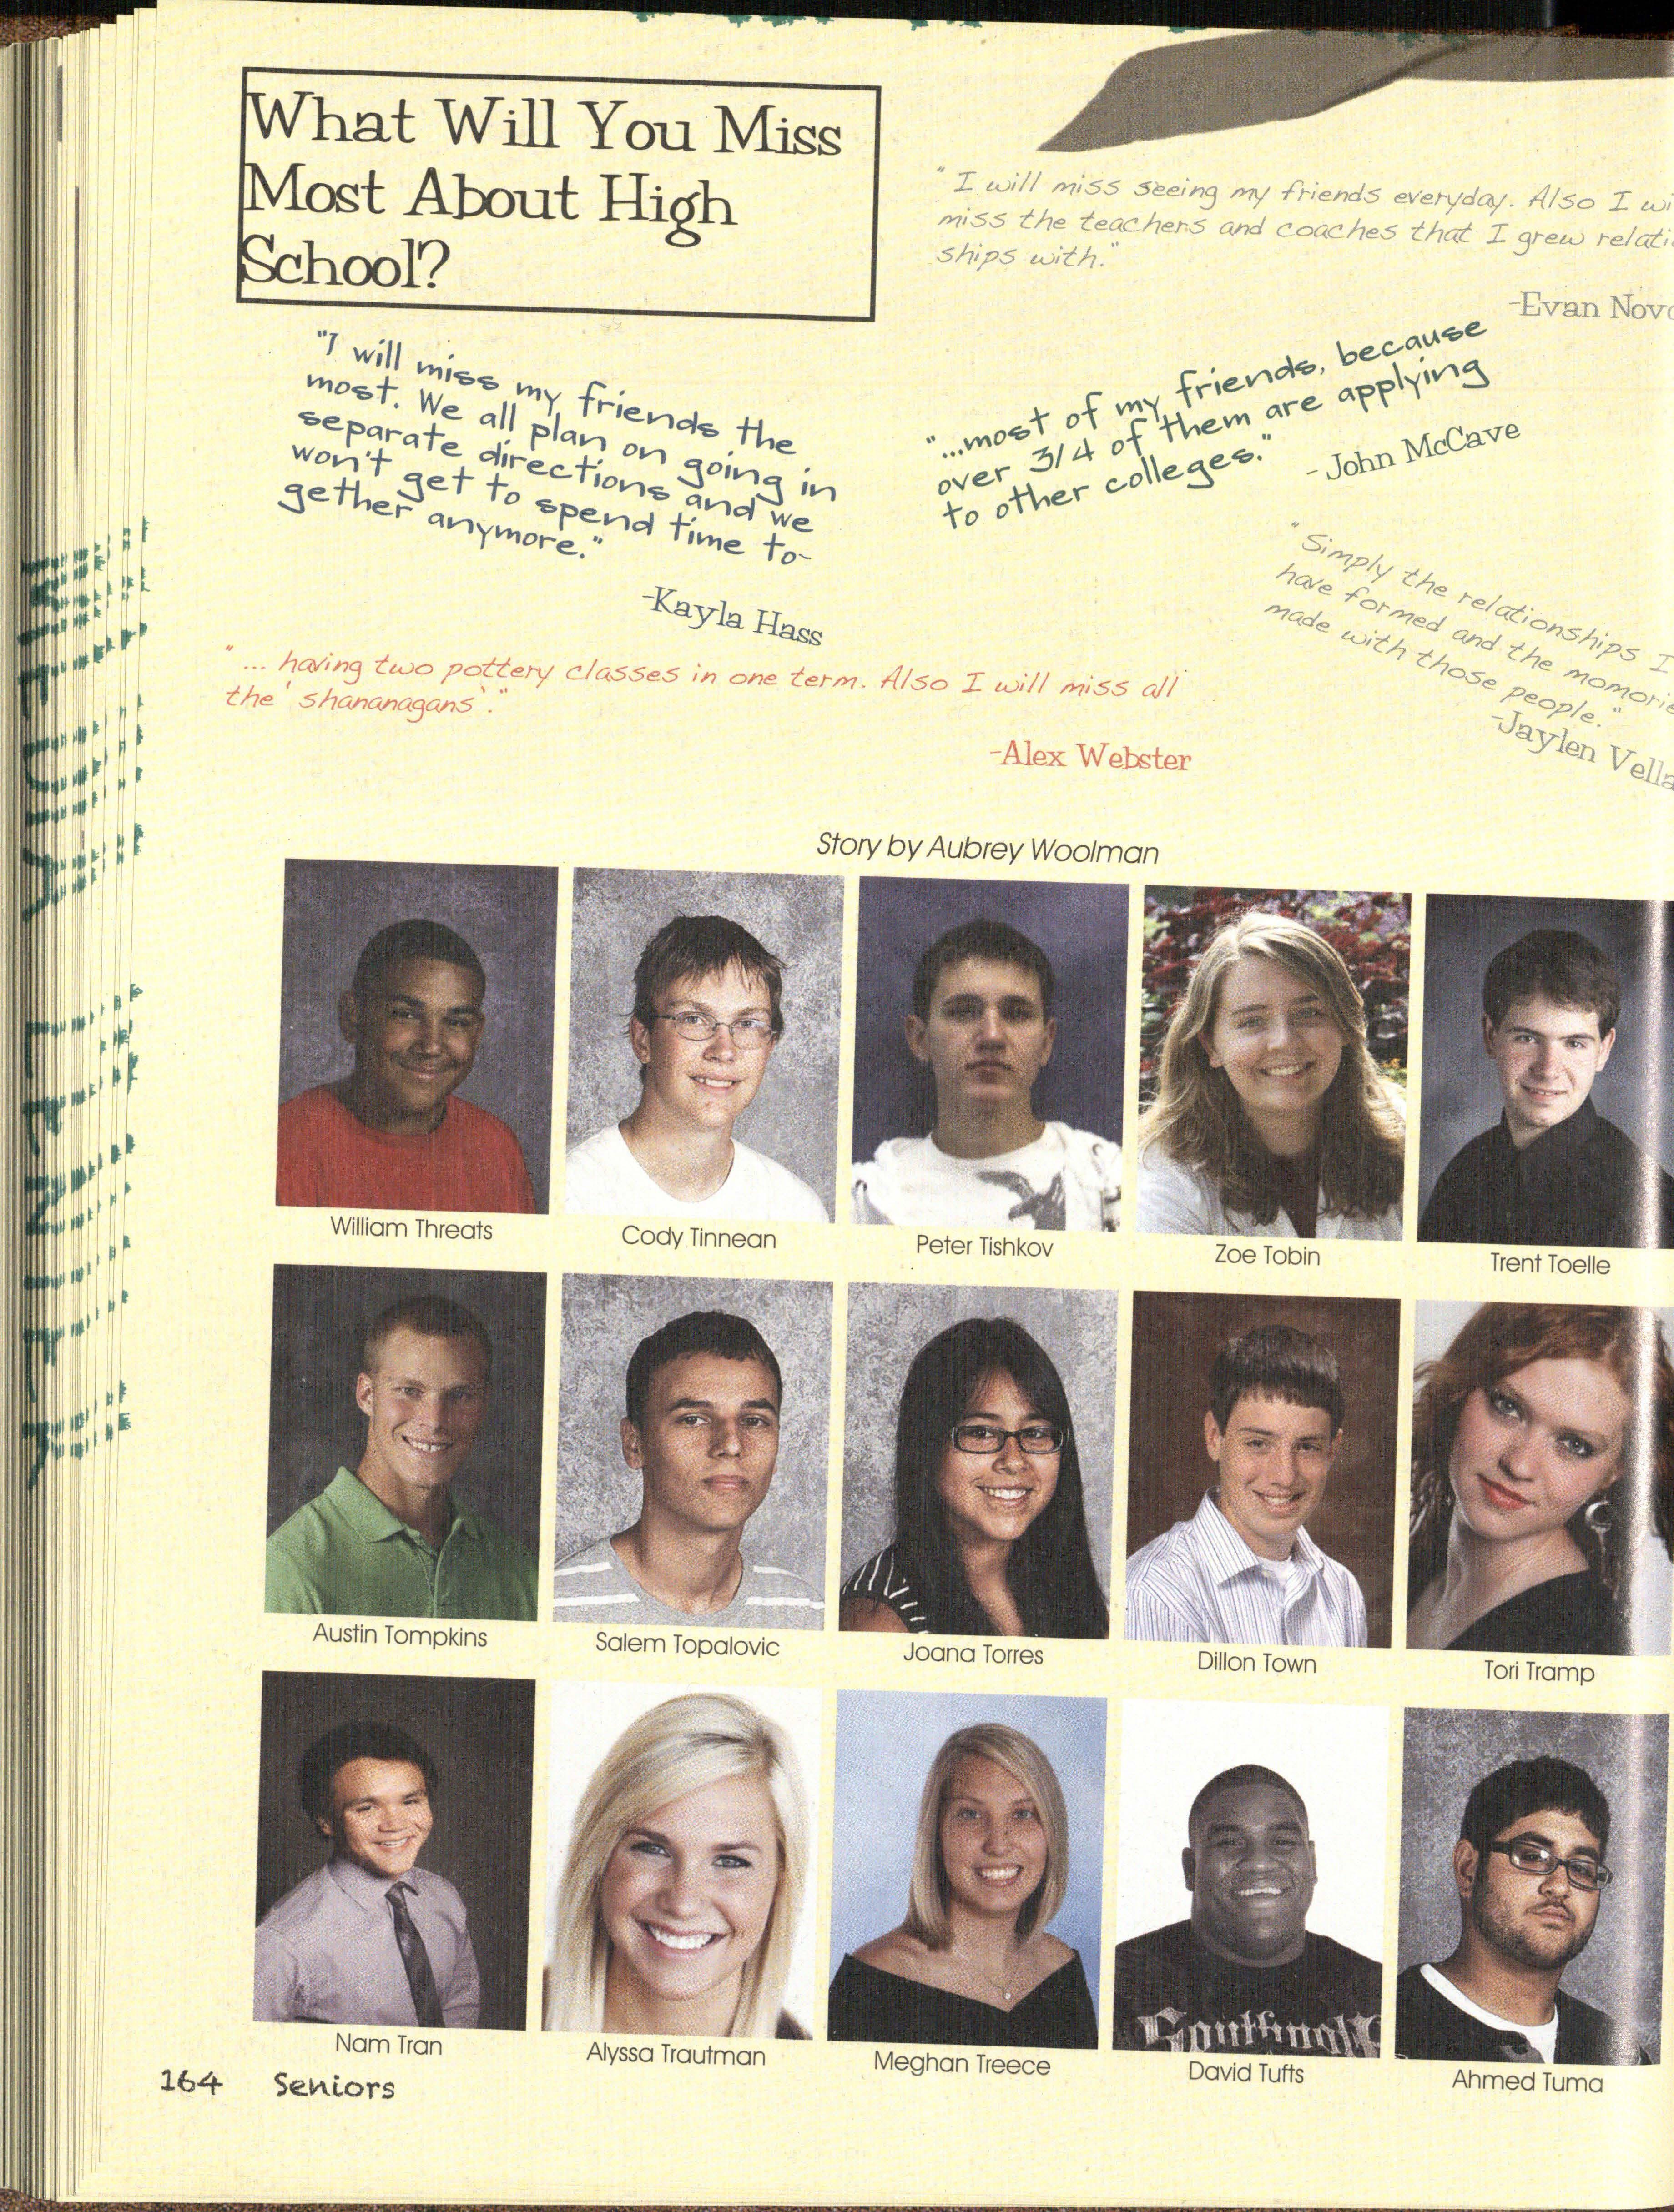 What Will You Miss
Most About High
School?
"I will miss seeing my friends everyday. Also I
miss the teachers and coaches that I grew
ships with."
-Evan
"I will miss my friends the
most. We all plan on going in
separate directions and we
won't get to spend time to-
gether anymore."
-Kayla Hass
"...most of my friends, because
over 3/4 of them are applying
to other colleges."
- John McCave
"Simply the relationships I
have formed and the
made with those people."
-Jaylen
"... having two pottery classes in one term. Also I will miss all
the 'shananagans'."
-Alex Webster
Story by Aubrey Woolman
William Threats
Cody Tinnean
Peter Tishkov
Zoe Tobin
Trent Toelle
Austin Tompkins
Salem Topalovic
Joana Torres
Dillon Town
Tori Tramp
Nam Tran
Alyssa Trautman
Meghan Treece
David Tufts
Ahmed Tuma
164 Seniors